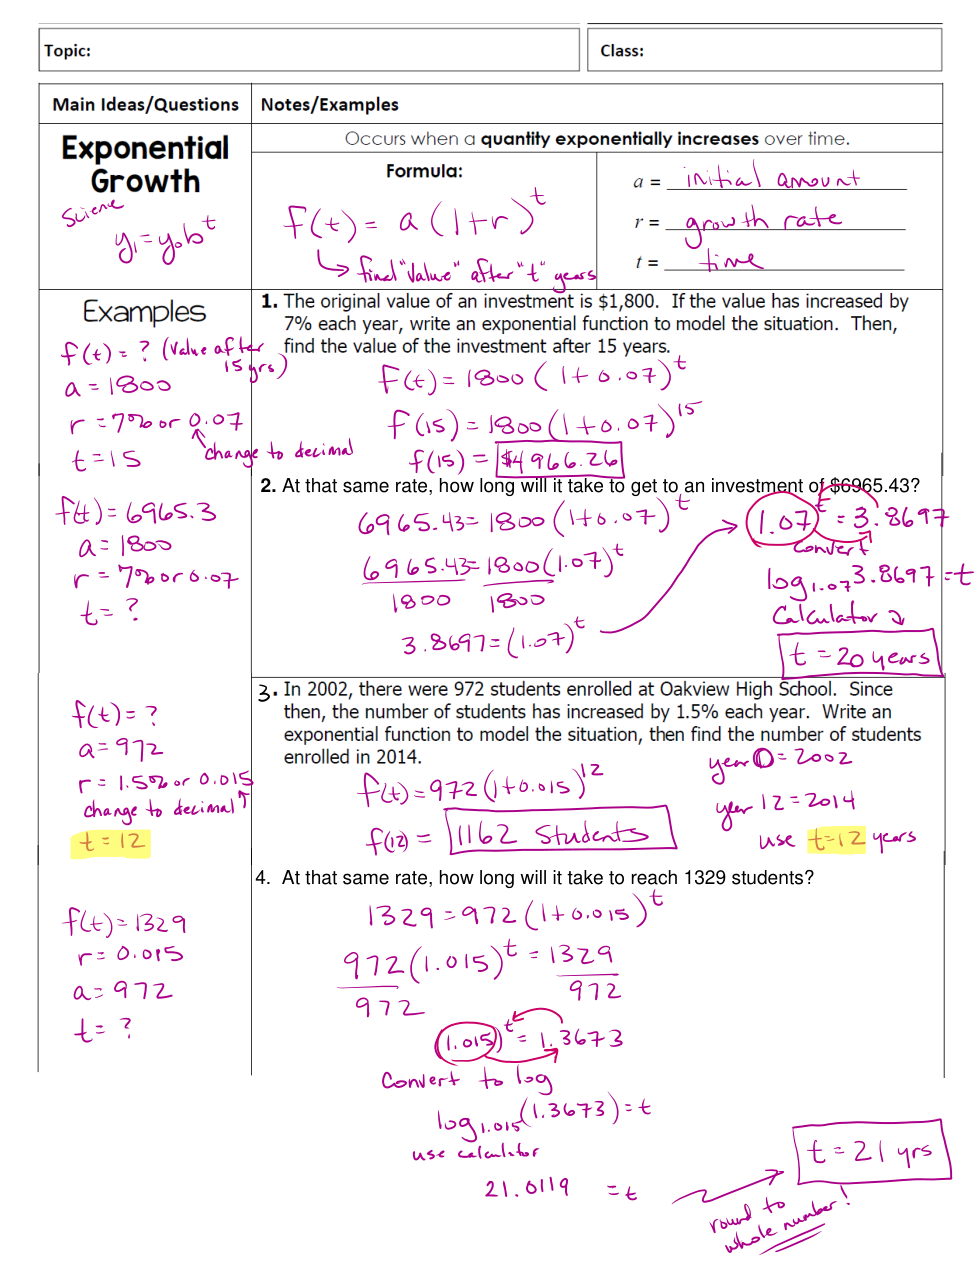 Topic:
Class:
Main Ideas/Questions
Notes/Examples
Exponential
Growth
Science
y₁=y₀b^t
Occurs when a quantity exponentially increases over time.
Formula:
f(t) = a (1+r)^t
↳ final "value" after "t" years
a = initial amount
r = growth rate
t = time
Examples
f(t) = ? (Value after
15 yrs)
a = 1800
r = 7% or 0.07
change to decimal
t = 15
1. The original value of an investment is $1,800. If the value has increased by
7% each year, write an exponential function to model the situation. Then,
find the value of the investment after 15 years.
f(t) = 1800 (1+0.07)^t
f(15) = 1800 (1+0.07)^15
f(15) = $4966.26
f(t) = 6965.3
a = 1800
r = 7% or 0.07
t = ?
2. At that same rate, how long will it take to get to an investment of $6965.43?
6965.43 = 1800 (1+0.07)^t
6965.43 = 1800 (1.07)^t
1800 1800
3.8697 = (1.07)^t
(1.07)^t = 3.8697
Convert
log₁.₀₇ 3.8697 = t
Calculator
t = 20 years
f(t) = ?
a = 972
r = 1.5% or 0.015
change to decimal ↑
t = 12
3. In 2002, there were 972 students enrolled at Oakview High School. Since
then, the number of students has increased by 1.5% each year. Write an
exponential function to model the situation, then find the number of students
enrolled in 2014.
f(t) = 972 (1+0.015)^12
f(12) = 1162 Students
year 0 = 2002
year 12 = 2014
use t=12 years
f(t) = 1329
r = 0.015
a = 972
t = ?
4. At that same rate, how long will it take to reach 1329 students?
1329 = 972 (1+0.015)^t
972 (1.015)^t = 1329
972 972
(1.015)^t = 1.3673
Convert to log
log₁.₀₁₅ (1.3673) = t
use calculator
21.0119 = t
round to
whole number!
t = 21 yrs